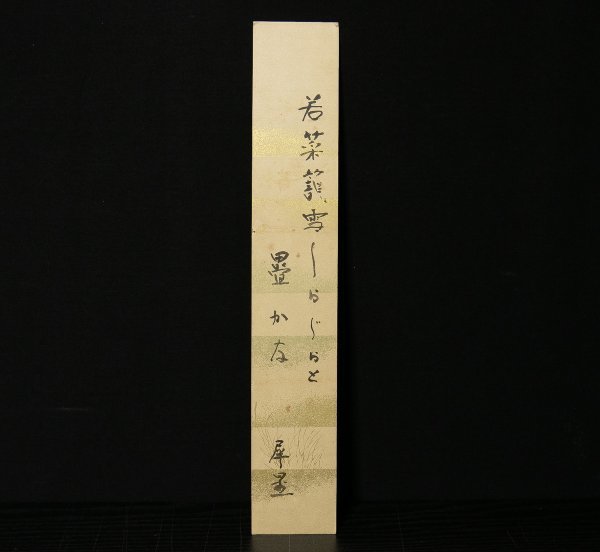 若菜籠雪しらじらと
畳かな
犀星